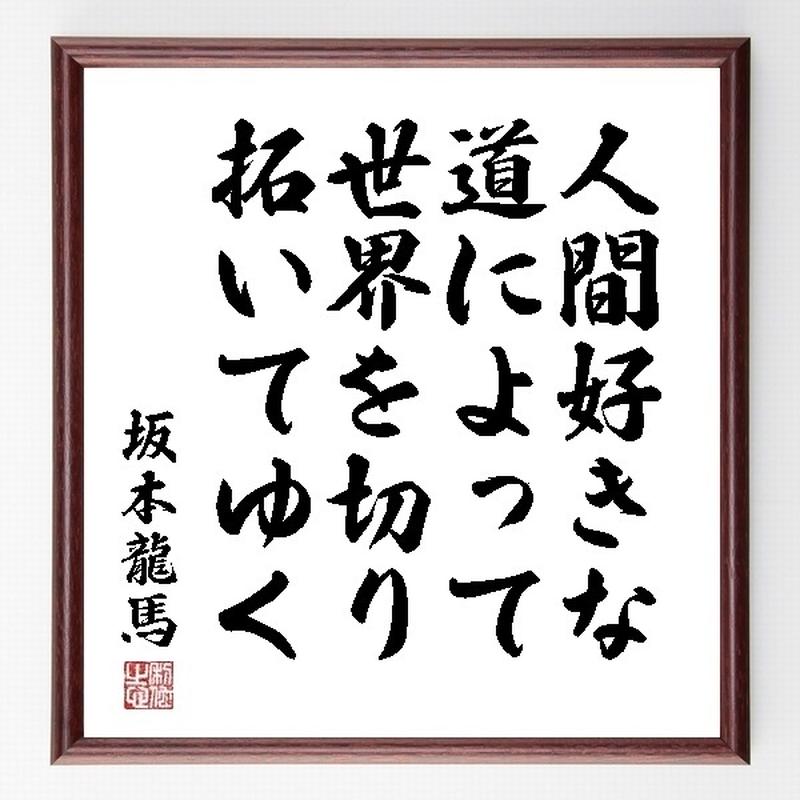 人間好きな
道によって
世界を切り
拓いてゆく
坂本龍馬